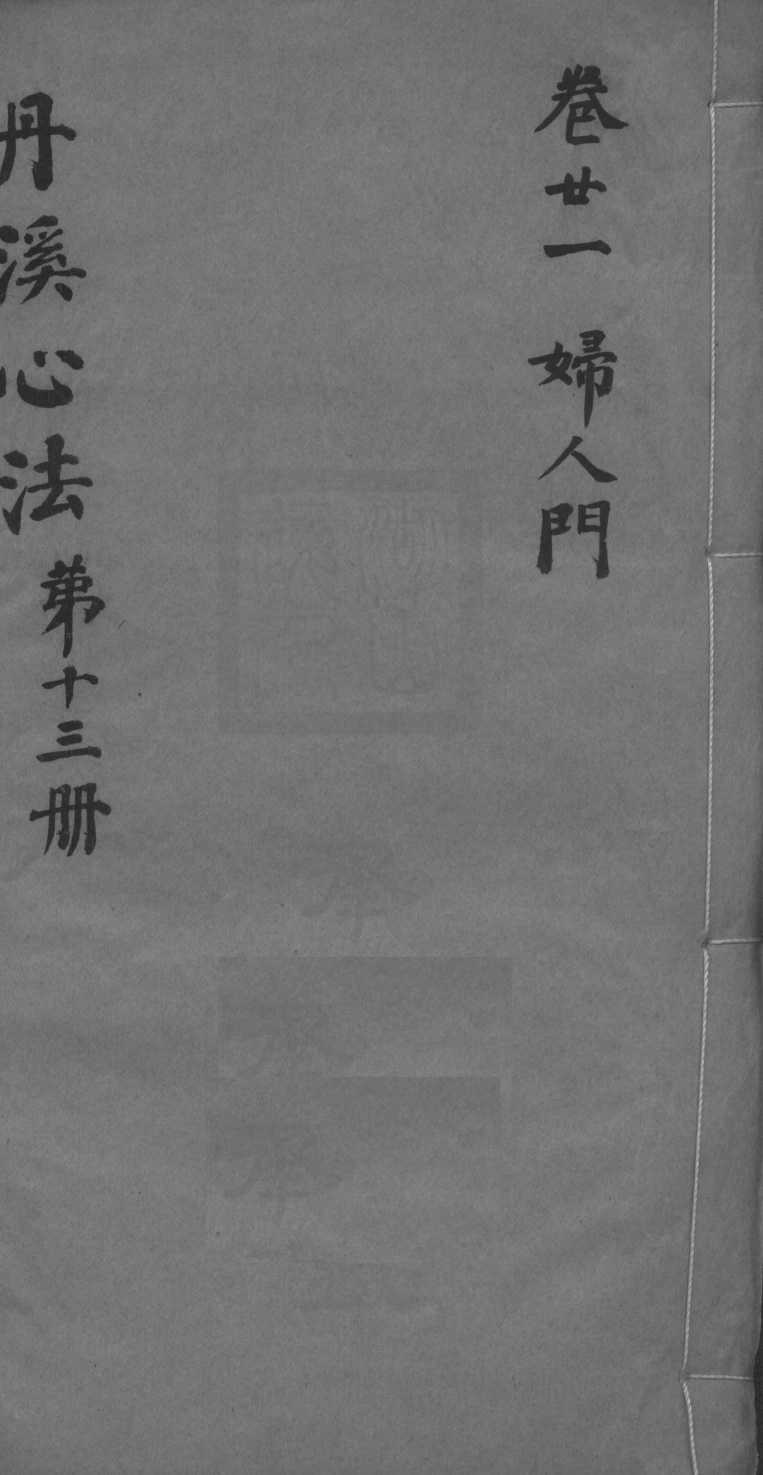 卷廿一　婦人門
丹溪心法 第十三册